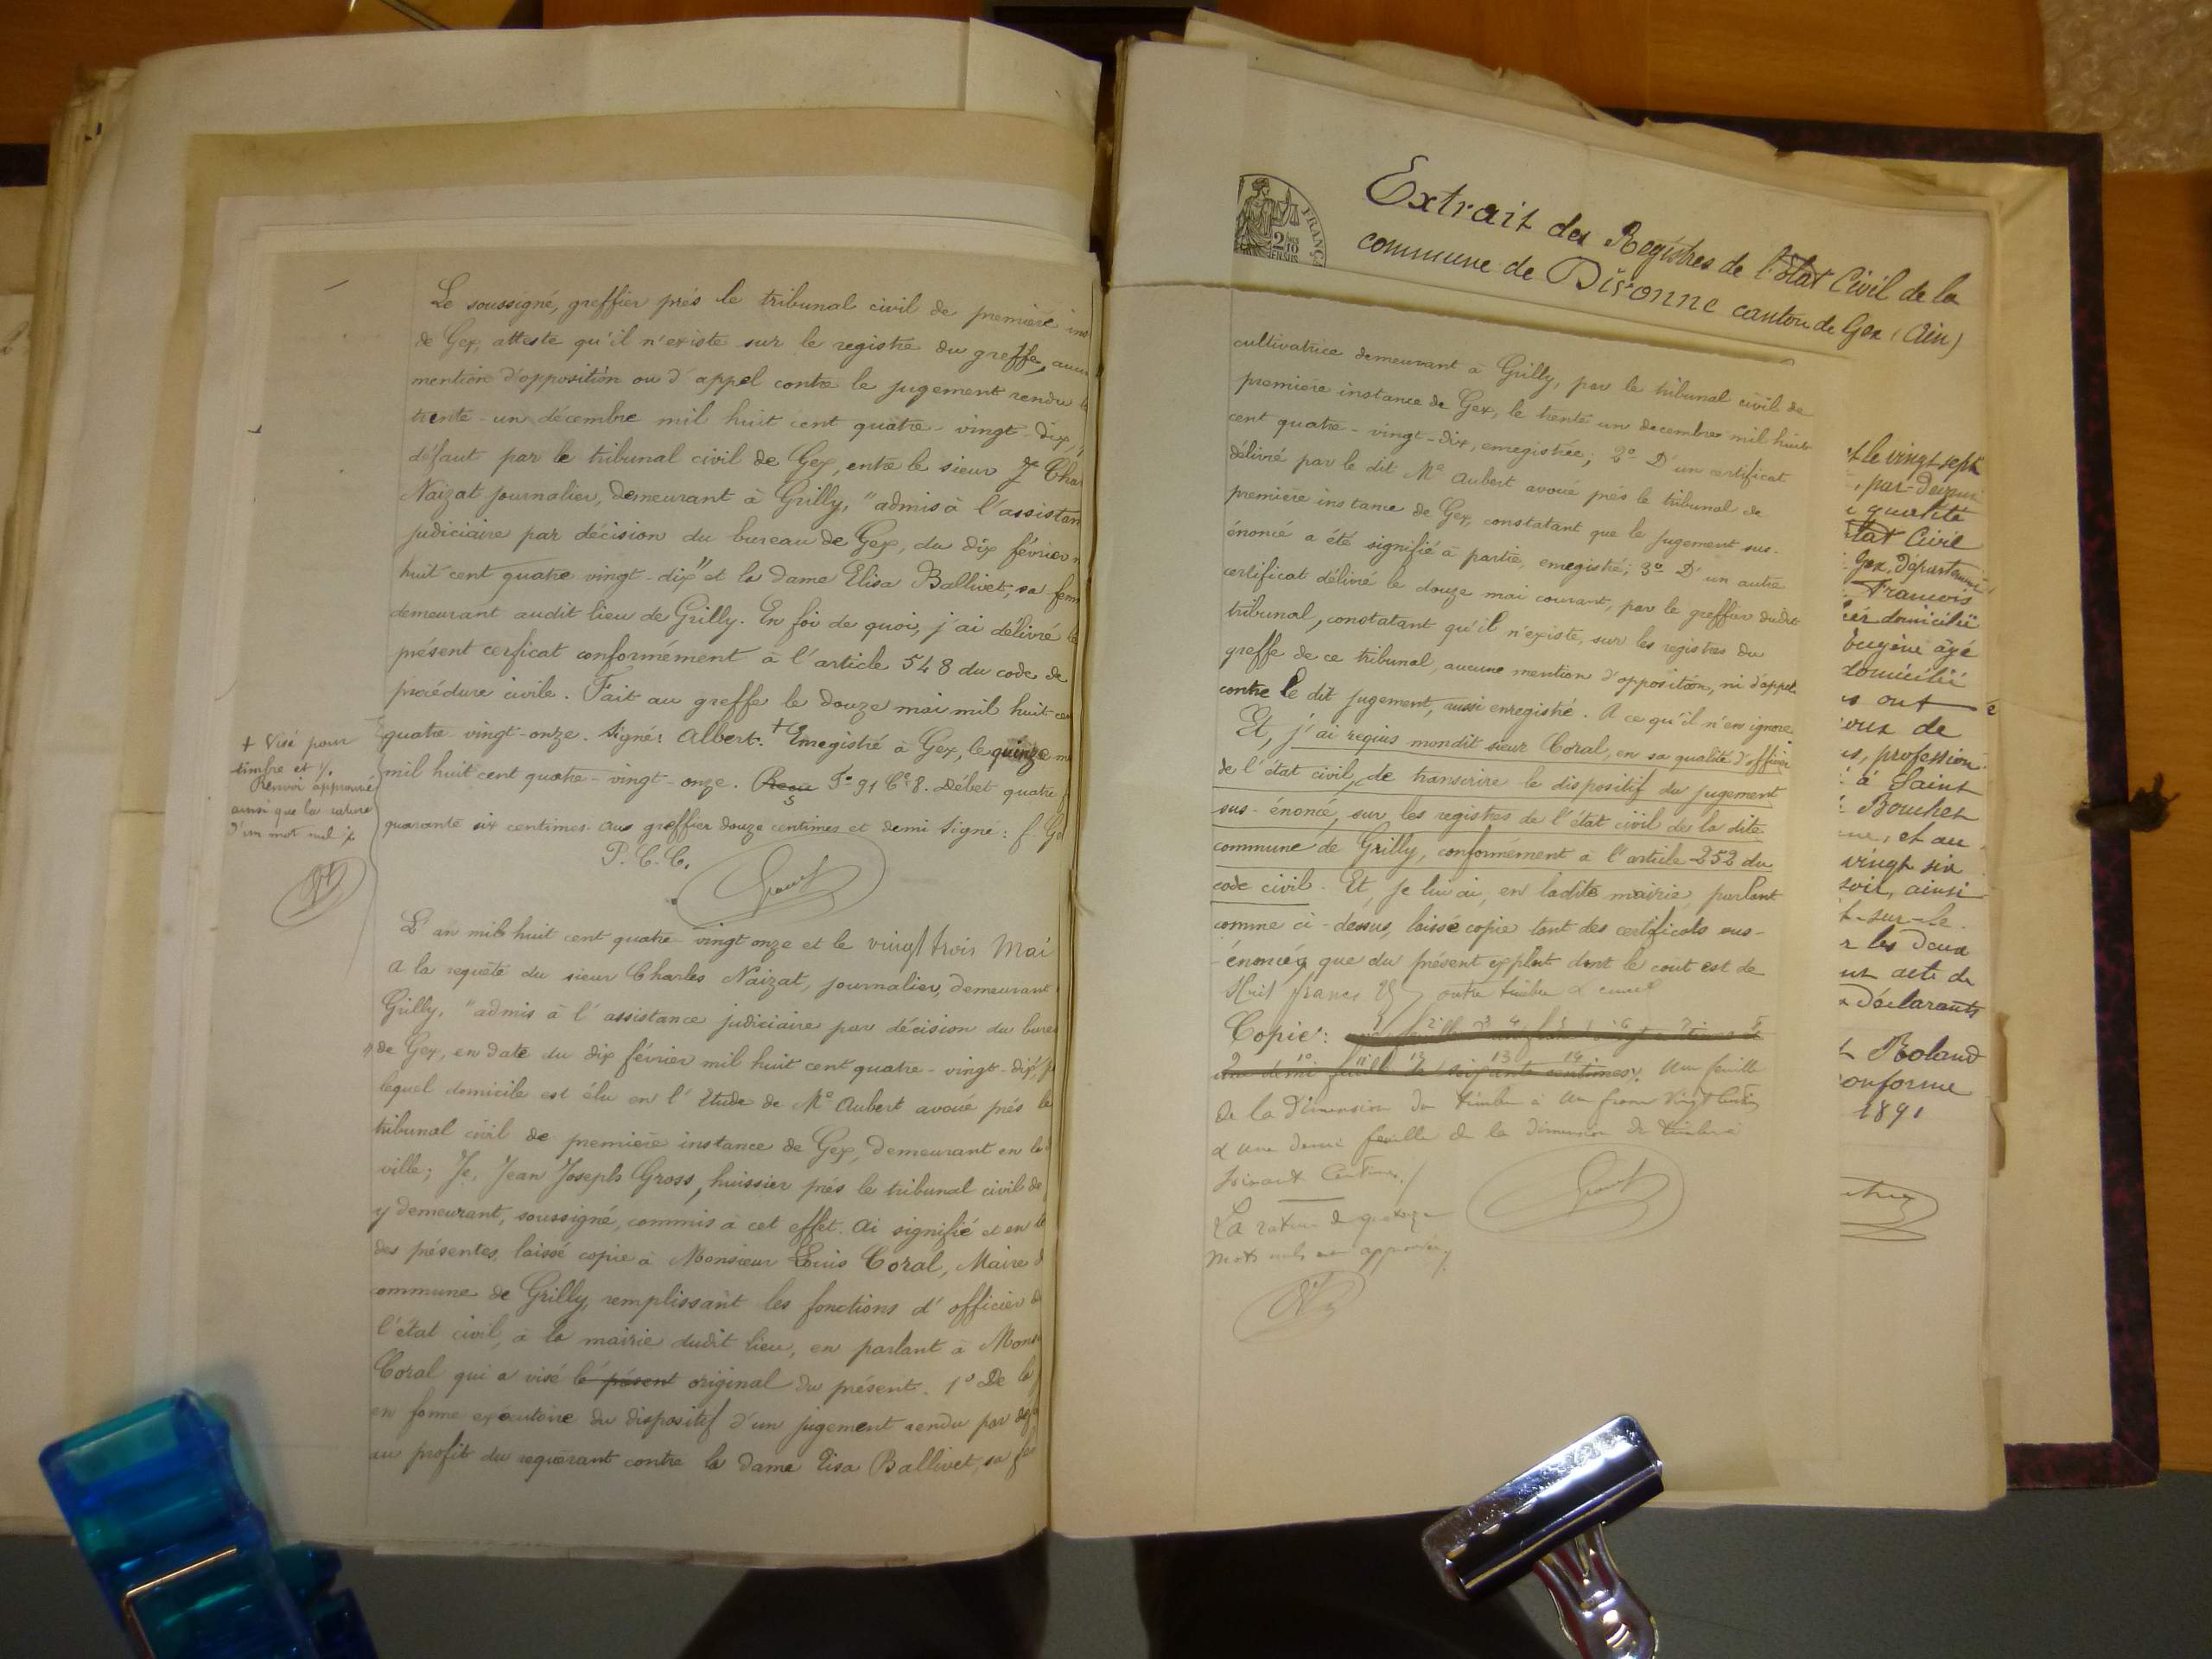 Le soussigné, greffier près le tribunal civil de première ins
de Gex, atteste qu'il n'existe sur le registre du greffe, aucu
mention d'opposition ou d'appel contre le jugement rendu le
trente-un décembre mil huit cent quatre-vingt-dix,
défaut par le tribunal civil de Gex, entre le sieur Cha
Naizat journalier, demeurant à Grilly, "admis à l'assistan
judiciaire par décision du bureau de Gex, du dix février m
huit cent quatre vingt-dix" et la dame Elisa Ballivet, sa fem
demeurant audit lieu de Grilly. En foi de quoi, j'ai délivré le
présent cerficat conformément à l'article 548 du code de
procédure civile. Fait au greffe le douze mai mil huit ce
quatre-vingt-onze. Signé: Albert. + Enregistré à Gex, le quinze m
mil huit cent quatre-vingt-onze. F° 91 C° 8. Débet quatre f
quarante six centimes. Au greffier douze centimes et demi Signé: f. Go
P.C.C.
+ Visé pour
timbre et
Renvoi approuvé
ainsi que la rature
d'un mot nul
L'an mil huit cent quatre-vingt onze et le vingt trois Mai
A la requête du sieur Charles Naizat, journalier, demeurant
Grilly, "admis à l'assistance judiciaire par décision du bure
" de Gex, en date du dix février mil huit cent quatre-vingt-dix, p
lequel domicile est élu en l'étude de Me Aubert avoué près le
tribunal civil de première instance de Gex, demeurant en la d
ville; Je, Jean Joseph Gross, huissier près le tribunal civil de
y demeurant, soussigné, commis à cet effet. Ai signifié et en tê
des présentes, laissé copie à Monsieur Louis Coral, Maire d
commune de Grilly, remplissant les fonctions d'officier de
l'état civil, à la mairie dudit lieu, en parlant à Mons
Coral qui a visé le présent original du présent. 1° De la
en forme exécutoire du dispositif d'un jugement rendu par dé
au profit du requérant contre la dame Elisa Ballivet, sa fe
2/10
EN SUS
FRANÇ
Extrait des Registres de l'état Civil de la
commune de Divonne canton de Gex (Ain)
cultivatrice demeurant à Grilly, par le tribunal civil de
première instance de Gex, le trente un décembre mil huit
cent quatre-vingt-dix, enregistrée; 2° D'un certificat
délivré par le dit Me Aubert avoué près le tribunal de
première instance de Gex, constatant que le jugement sus-
énoncé a été signifié à partie, enregistré; 3° D'un autre
certificat délivré le douze mai courant, par le greffier dudit
tribunal, constatant qu'il n'existe, sur les registres du
greffe de ce tribunal, aucune mention d'opposition, ni d'appel
contre le dit jugement, aussi enregistré. A ce qu'il n'en ignore
Et, j'ai requis mondit sieur Coral, en sa qualité d'officier
de l'état civil, de transcrire le dispositif du jugement
sus-énoncé, sur les registres de l'état civil de la dite
commune de Grilly, conformément à l'article 252 du
code civil. Et, je lui ai, en ladite mairie, parlant
comme ci-dessus, laissé copie tant des certificats sus-
énoncés que du présent exploit dont le coût est de
Huit francs 25 outre timbre
Copie:
une demi feuille de soixante centimes. Une feuille
de la dimension du timbre à un franc vingt centimes
& une demi feuille de la dimension du timbre à
soixante Centimes./
La rature de quatorze
mots nuls est approuvée
t le vingt sept
, par-devant
qualité
état Civil
Gex, Département
François
ier domicilié
Eugène âgé
domicilié
s ont
ours de
is, profession
à Saint
Bouchet
ne, et au
vingt six
soir, ainsi
t-sur-le
r les deux
nt acte de
déclarants
Roland
onforme
1891